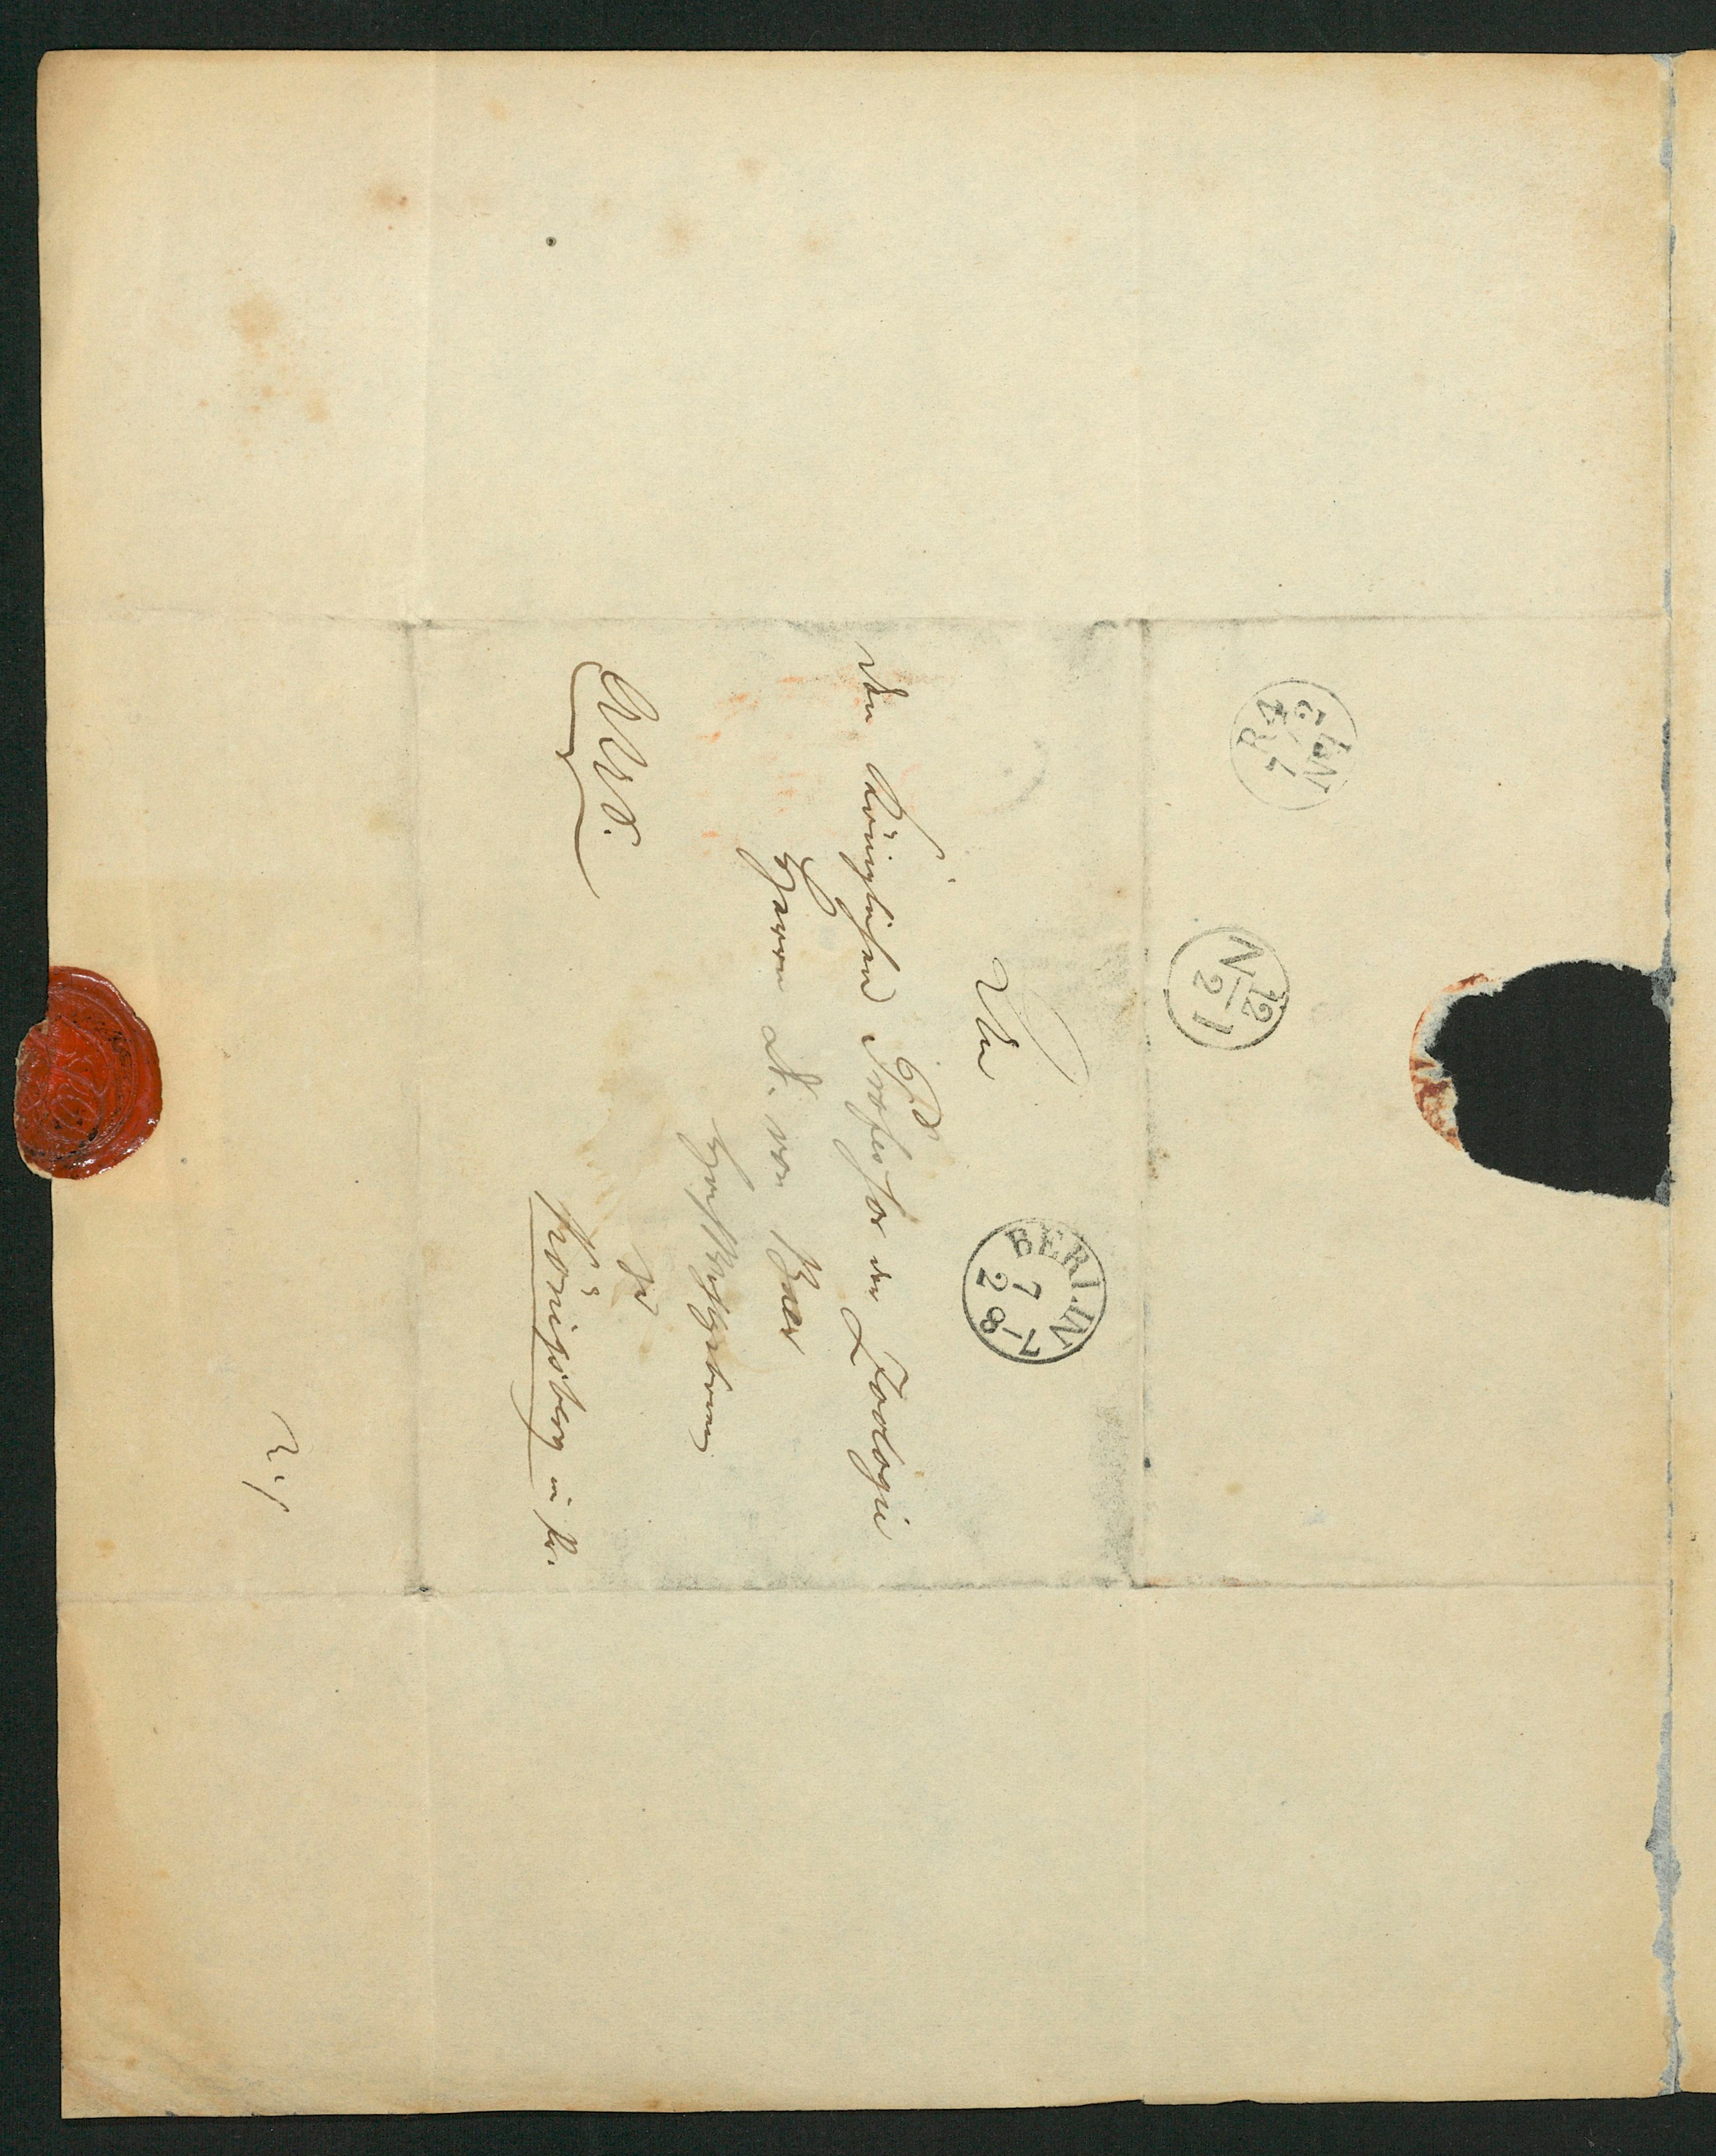 An
den Königlichen Professor der Zoologie
Herrn Dr. von Baer
Hochwohlgeboren
zu
Königsberg in Pr.
BERLIN
7
2
7-8
N 12
2 1